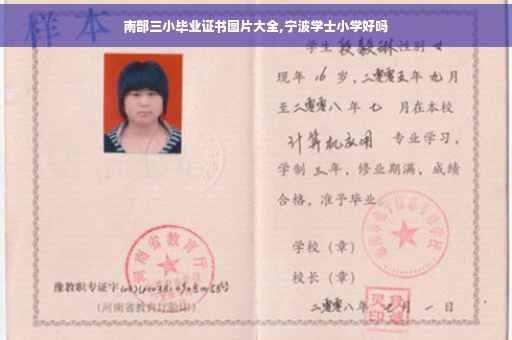 南部三小毕业证书图片大全,宁波学士小学好吗
样本
学生段毅琳性别女
现年16岁，二零零五年九月
至二零零八年七月在本校
计算机应用 专业学习，
学制三年，修业期满，成绩
合格，准予毕业
学校（章）
校长（章）
二零零八年七月一日
河南省教育厅
豫教职专证字
（河南省教育厅验印）